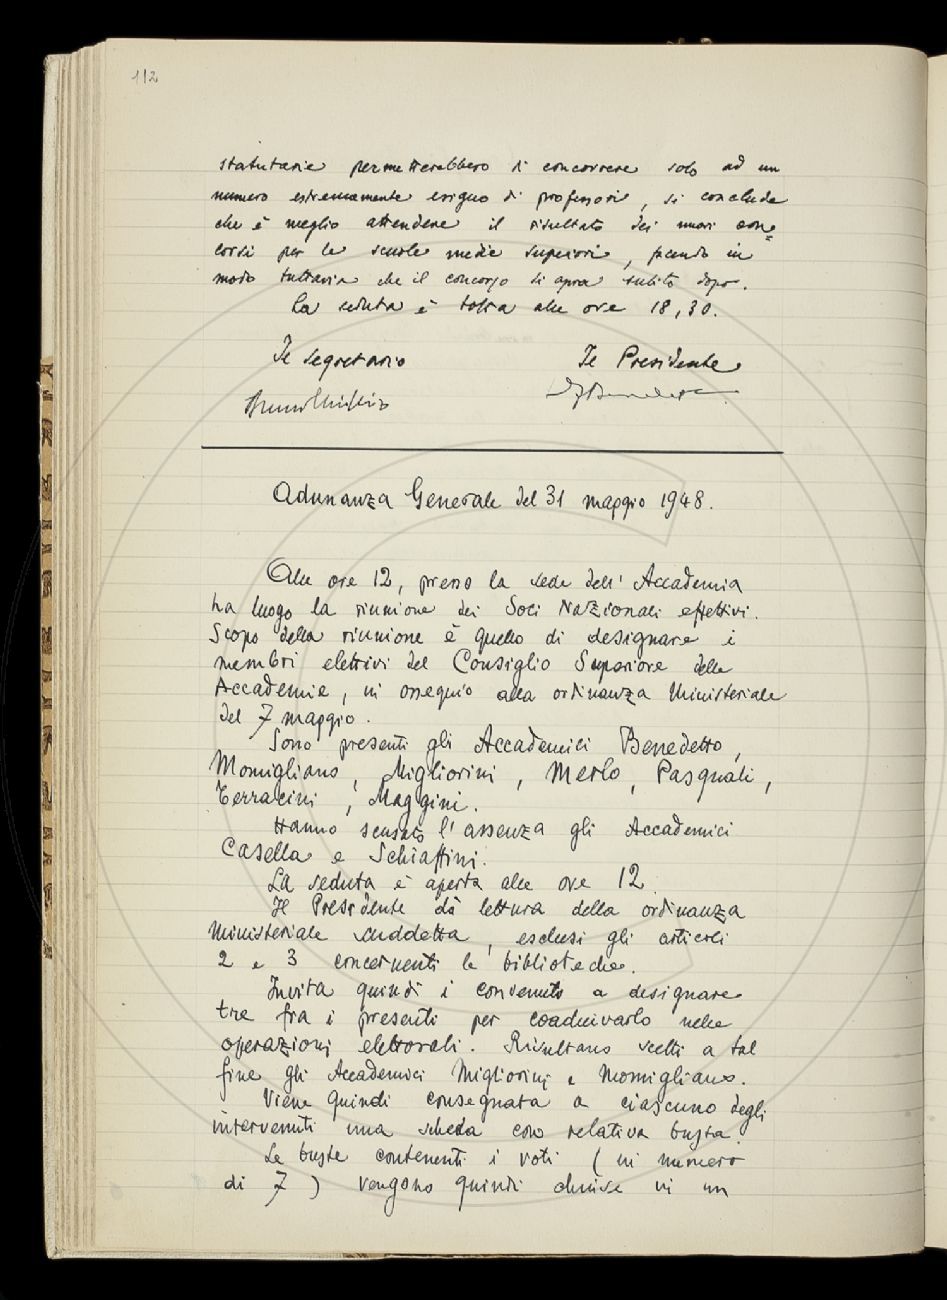 112
statutarie permetterebbero di concorrere solo ad un
numero estremamente esiguo di professori, si conclude
che è meglio attendere il risultato dei nuovi con=
corsi per le scuole medie superiori, facendo in
modo tuttavia che il concorso si apra subito dopo.
La seduta è tolta alle ore 18,30.
Il segretario Il Presidente
Adunanza Generale del 31 maggio 1948.
Alle ore 12, presso la sede dell'Accademia
ha luogo la riunione dei Soci Nazionali effettivi.
Scopo della riunione è quello di designare i
membri elettivi del Consiglio Superiore delle
Accademie, in ossequio alla ordinanza Ministeriale
del 7 maggio.
Sono presenti gli Accademici Benedetto,
Momigliano, Migliorini, Merlo, Pasquali,
Terracini, Maggini.
Hanno scusato l'assenza gli Accademici
Casella e Schiaffini.
La seduta è aperta alle ore 12.
Il Presidente dà lettura della ordinanza
Ministeriale suddetta, esclusi gli articoli
2 e 3 concernenti le biblioteche.
Invita quindi i convenuti a designare
tre fra i presenti per coadiuvarlo nelle
operazioni elettorali. Risultano scelti a tal
fine gli Accademici Migliorini e Momigliano.
Viene quindi consegnata a ciascuno degli
intervenuti una scheda con relativa busta.
Le buste contenenti i voti (in numero
di 7) vengono quindi chiuse in un